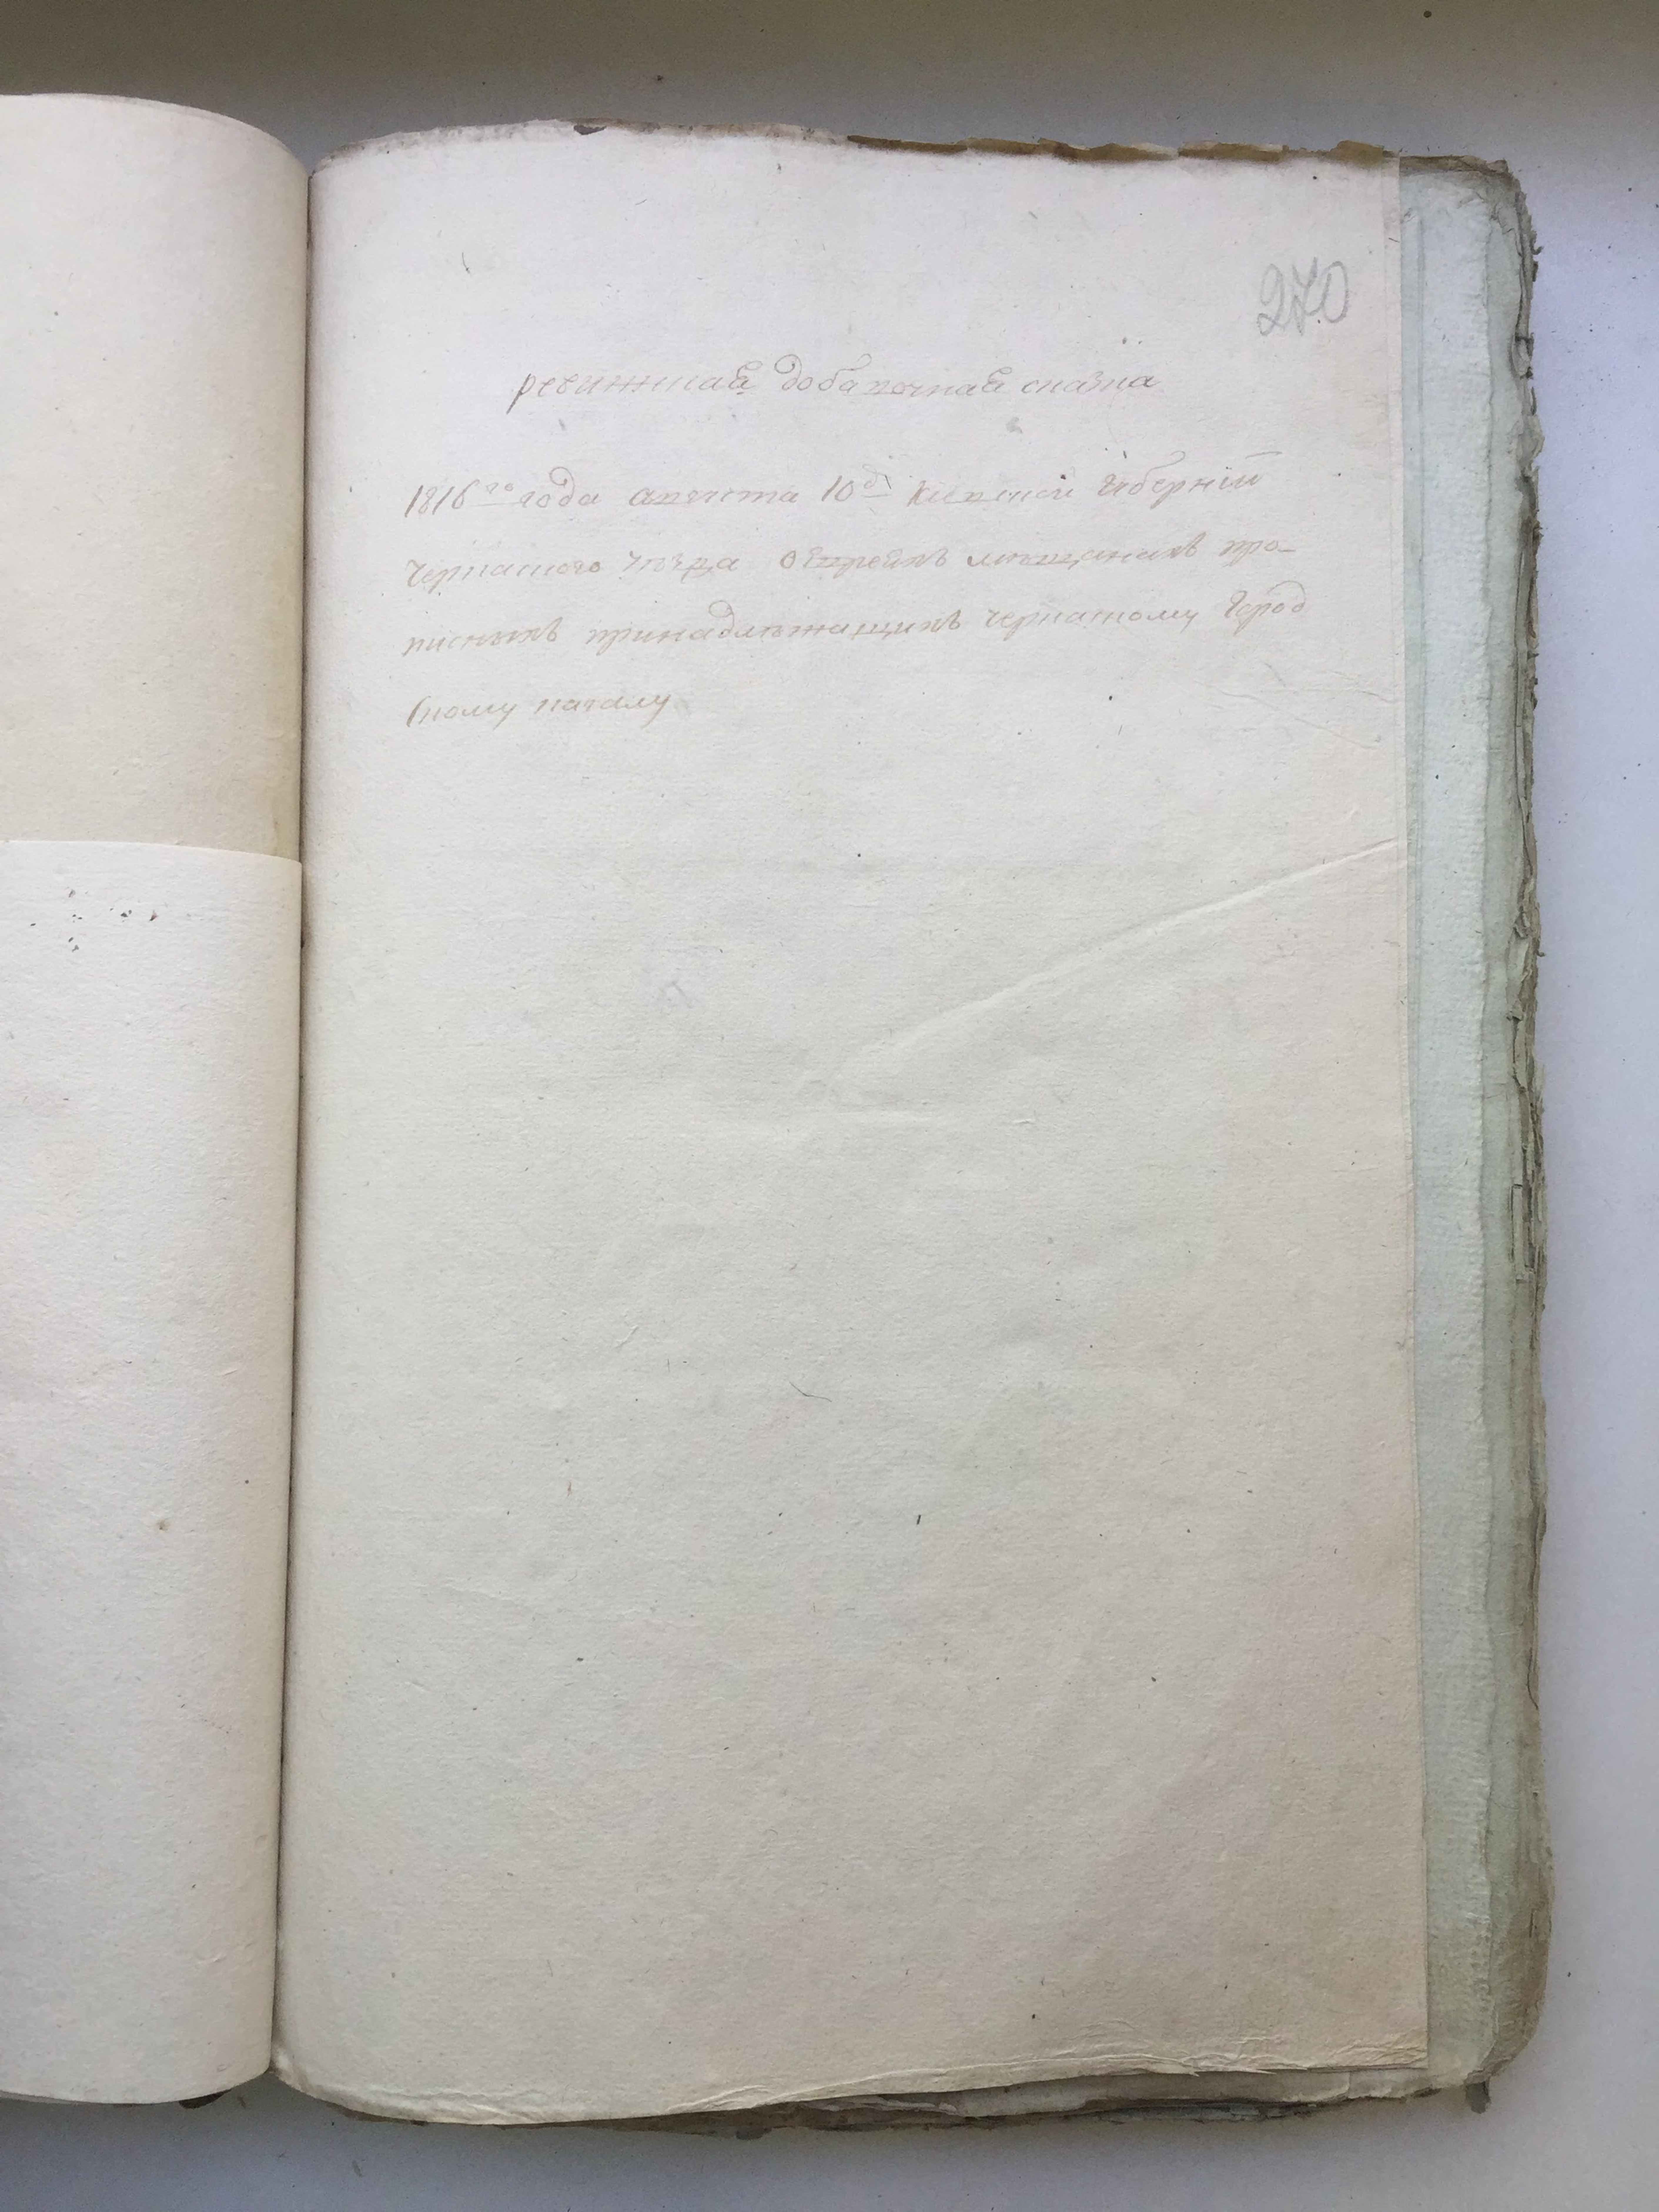 270
ревижская добавочная сказка
1816го года августа 10д: Киевской губернїи
черкаского уезда Оевреихъ мещанахъ про-
писныхъ принадлежащихъ черкаскому город
скому кагалу